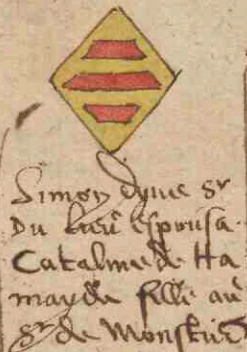 Simon d'yve sr
du lieu espousa
Cataline de Ha
mayde fille au
sr de Monstier